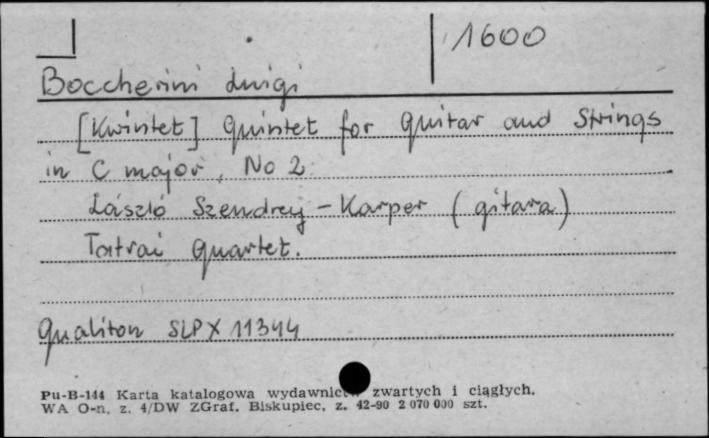 1600
Boccherini Luigi
[Kwintet] Quintet for Guitar and Strings
in C major, No 2
László Szendrey-Karper (gitara)
Tatrai Quartet.
Qualiton SLPX 11344
Pu-B-144 Karta katalogowa wydawnictw zwartych i ciągłych.
WA O-n, z. 4/DW ZGraf. Biskupiec, z. 42-90 2 070 000 szt.